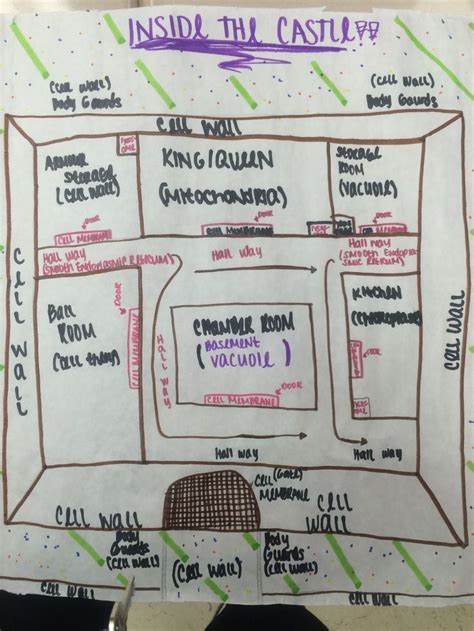 INSIDE THE CASTLE!!
(Cell Wall)
Body Gaurds
(Cell Wall)
Body Gaurds
Cell Wall
Armour
Storage
(Cell Wall)
King/Queen
(Mitochondria)
Storage
Room
(Vacuole)
Door
Cell Membrane
Door
Cell Membrane
Door
Membrane
Hall Way
(Smooth Endoplasmic Reticum)
Hall Way
Hall Way
(Smooth Endoplas
mic Reticum)
Cell Wall
Cell Wall
Ball
Room
Door
Cell Membrane
Hall Way
Chamber Room
(Basement
Vacuole)
Door
Cell Membrane
Kitchen
Door
Hall Way
Hall Way
(Gate)
Cell
Membrane
Cell Wall
Cell
Wall
Body
Guards
(Cell Wall)
(Cell Wall)
Body
Guards
(Cell Wall)
Cell Wall
Cell Wall